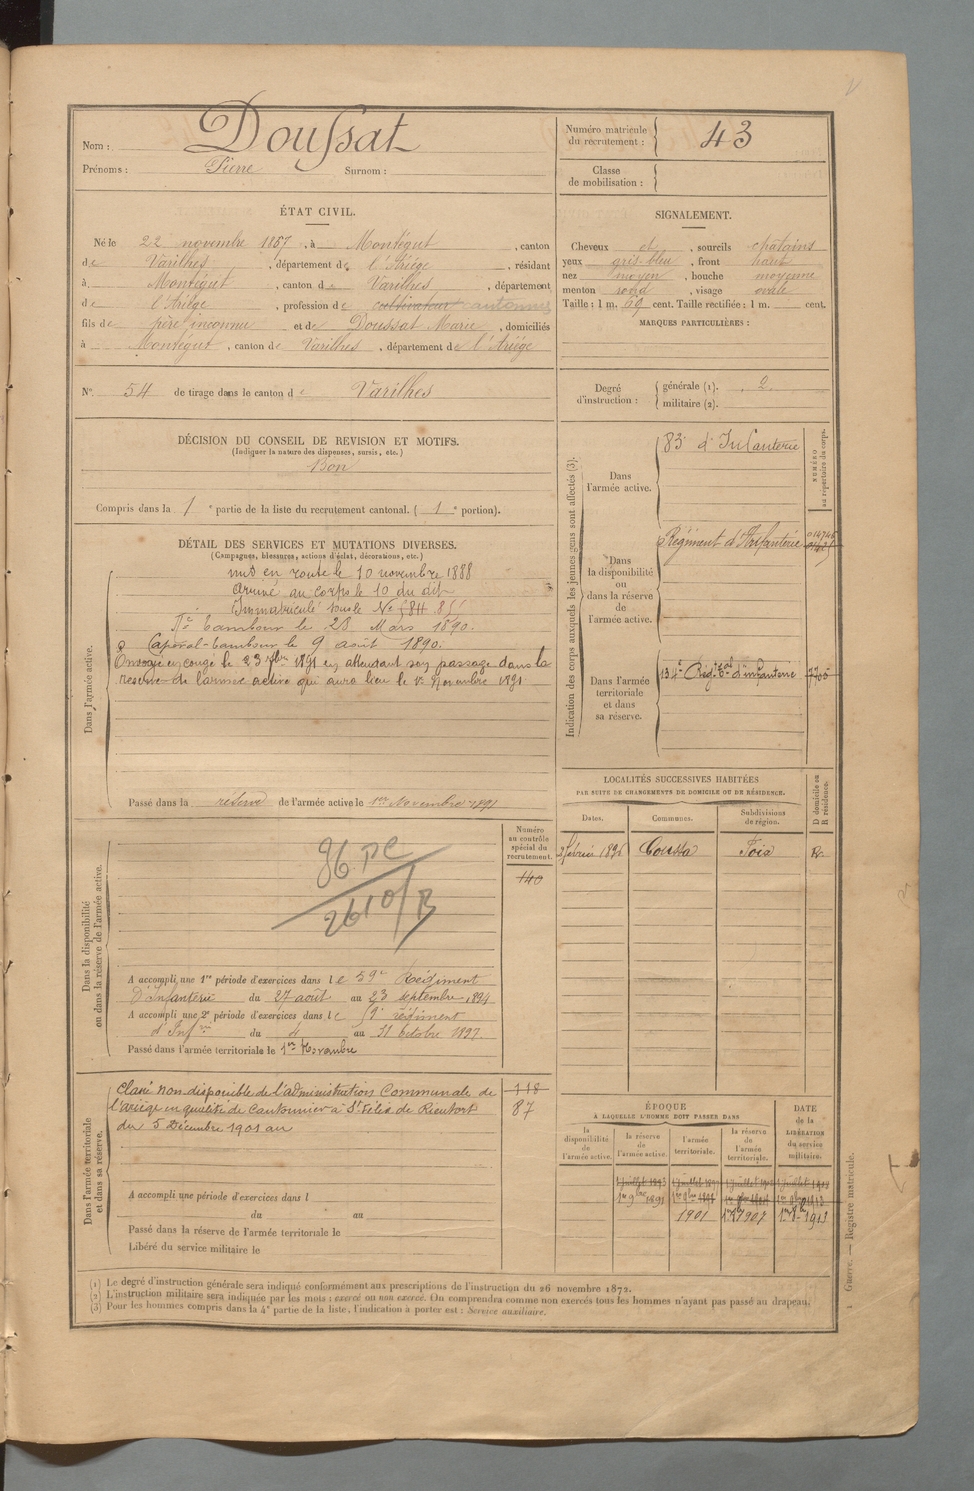 Nom : Doussat
Prénoms : Pierre Surnom :
Numéro matricule du recrutement : 43
Classe de mobilisation :
ÉTAT CIVIL.
Né le 22 novembre 1867, à Montégut, canton
de Varilhes, département de l'Ariége, résidant
à Montégut, canton de Varilhes, département
de l'Ariége, profession de cultivateur cantonnier
fils de père inconnu et de Doussat Marie, domiciliés
à Montégut, canton de Varilhes, département de l'Ariége
N° 54 de tirage dans le canton de Varilhes
SIGNALEMENT.
Cheveux et, sourcils chatains
yeux gris-bleu, front haut
nez moyen, bouche moyenne
menton rond, visage ovale
Taille : 1 m. 69 cent. Taille rectifiée : 1 m. cent.
MARQUES PARTICULIÈRES :
Degré d'instruction : générale (1). 2
militaire (2).
DÉCISION DU CONSEIL DE REVISION ET MOTIFS.
(Indiquer la nature des dispenses, sursis, etc.)
Bon
Compris dans la 1e partie de la liste du recrutement cantonal. ( 1e portion).
DÉTAIL DES SERVICES ET MUTATIONS DIVERSES.
(Campagnes, blessures, actions d'éclat, décorations, etc.)
Dans l'armée active.
mis en route le 10 novembre 1888
Arrivé au corps le 10 du dit
Immatriculé sous le N°
Tambour le 28 Mars 1890.
Caporal-tambour le 9 août 1890.
Envoyé en congé le 23 7bre 1891 en attendant son passage dans la
réserve de l'armée active qui aura lieu le 1er Novembre 1891
Passé dans la réserve de l'armée active le 1er Novembre 1891
Indication des corps auxquels les jeunes gens sont affectés (3).
NUMÉRO au répertoire du corps.
Dans l'armée active.
83e d'Infanterie
Dans la disponibilité ou dans la réserve de l'armée active.
Régiment d'Infanterie
Dans l'armée territoriale et dans sa réserve.
134e Régt Tal d'infanterie
LOCALITÉS SUCCESSIVES HABITÉES
PAR SUITE DE CHANGEMENTS DE DOMICILE OU DE RÉSIDENCE.
D domicile ou R résidence.
Dates. Communes. Subdivisions de région.
février Coussa Foix R.
Dans la disponibilité ou dans la réserve de l'armée active.
Numéro au contrôle spécial du recrutement.
140
86 PC
2610/B
A accompli une 1re période d'exercices dans le 59e Régiment
d'Infanterie du 27 août au 23 septembre 1894
A accompli une 2e période d'exercices dans le 59e régiment
d'Infrie du 4 au 31 octobre 1897
Passé dans l'armée territoriale le 1er Novembre
Dans l'armée territoriale et dans sa réserve.
Classé non disponible de l'administration Communale de
l'ariège en qualité de Cantonnier à St Félix de Rieutort
du 5 Décembre 1901 au
118
87
A accompli une période d'exercices dans l
du au
Passé dans la réserve de l'armée territoriale le
Libéré du service militaire le
ÉPOQUE
À LAQUELLE L'HOMME DOIT PASSER DANS
DATE de la LIBÉRATION du service militaire.
la disponibilité de l'armée active.
la réserve de l'armée active.
l'armée territoriale.
la réserve de l'armée territoriale.
1er 9bre 1891
1901 1907 1913
(1) Le degré d'instruction générale sera indiqué conformément aux prescriptions de l'instruction du 26 novembre 1872.
(2) L'instruction militaire sera indiquée par les mots : exercé ou non exercé. On comprendra comme non exercés tous les hommes n'ayant pas passé au drapeau.
(3) Pour les hommes compris dans la 4e partie de la liste, l'indication à porter est : Service auxiliaire.
Guerre. — Registre matricule.